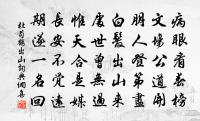 病眼看春榜
文場公道開
朋人登第盡
白髮出山來
處世曾無過
惟天合是媒
長安不覺遠
期遂一名回
杜荀鶴出山詞典網